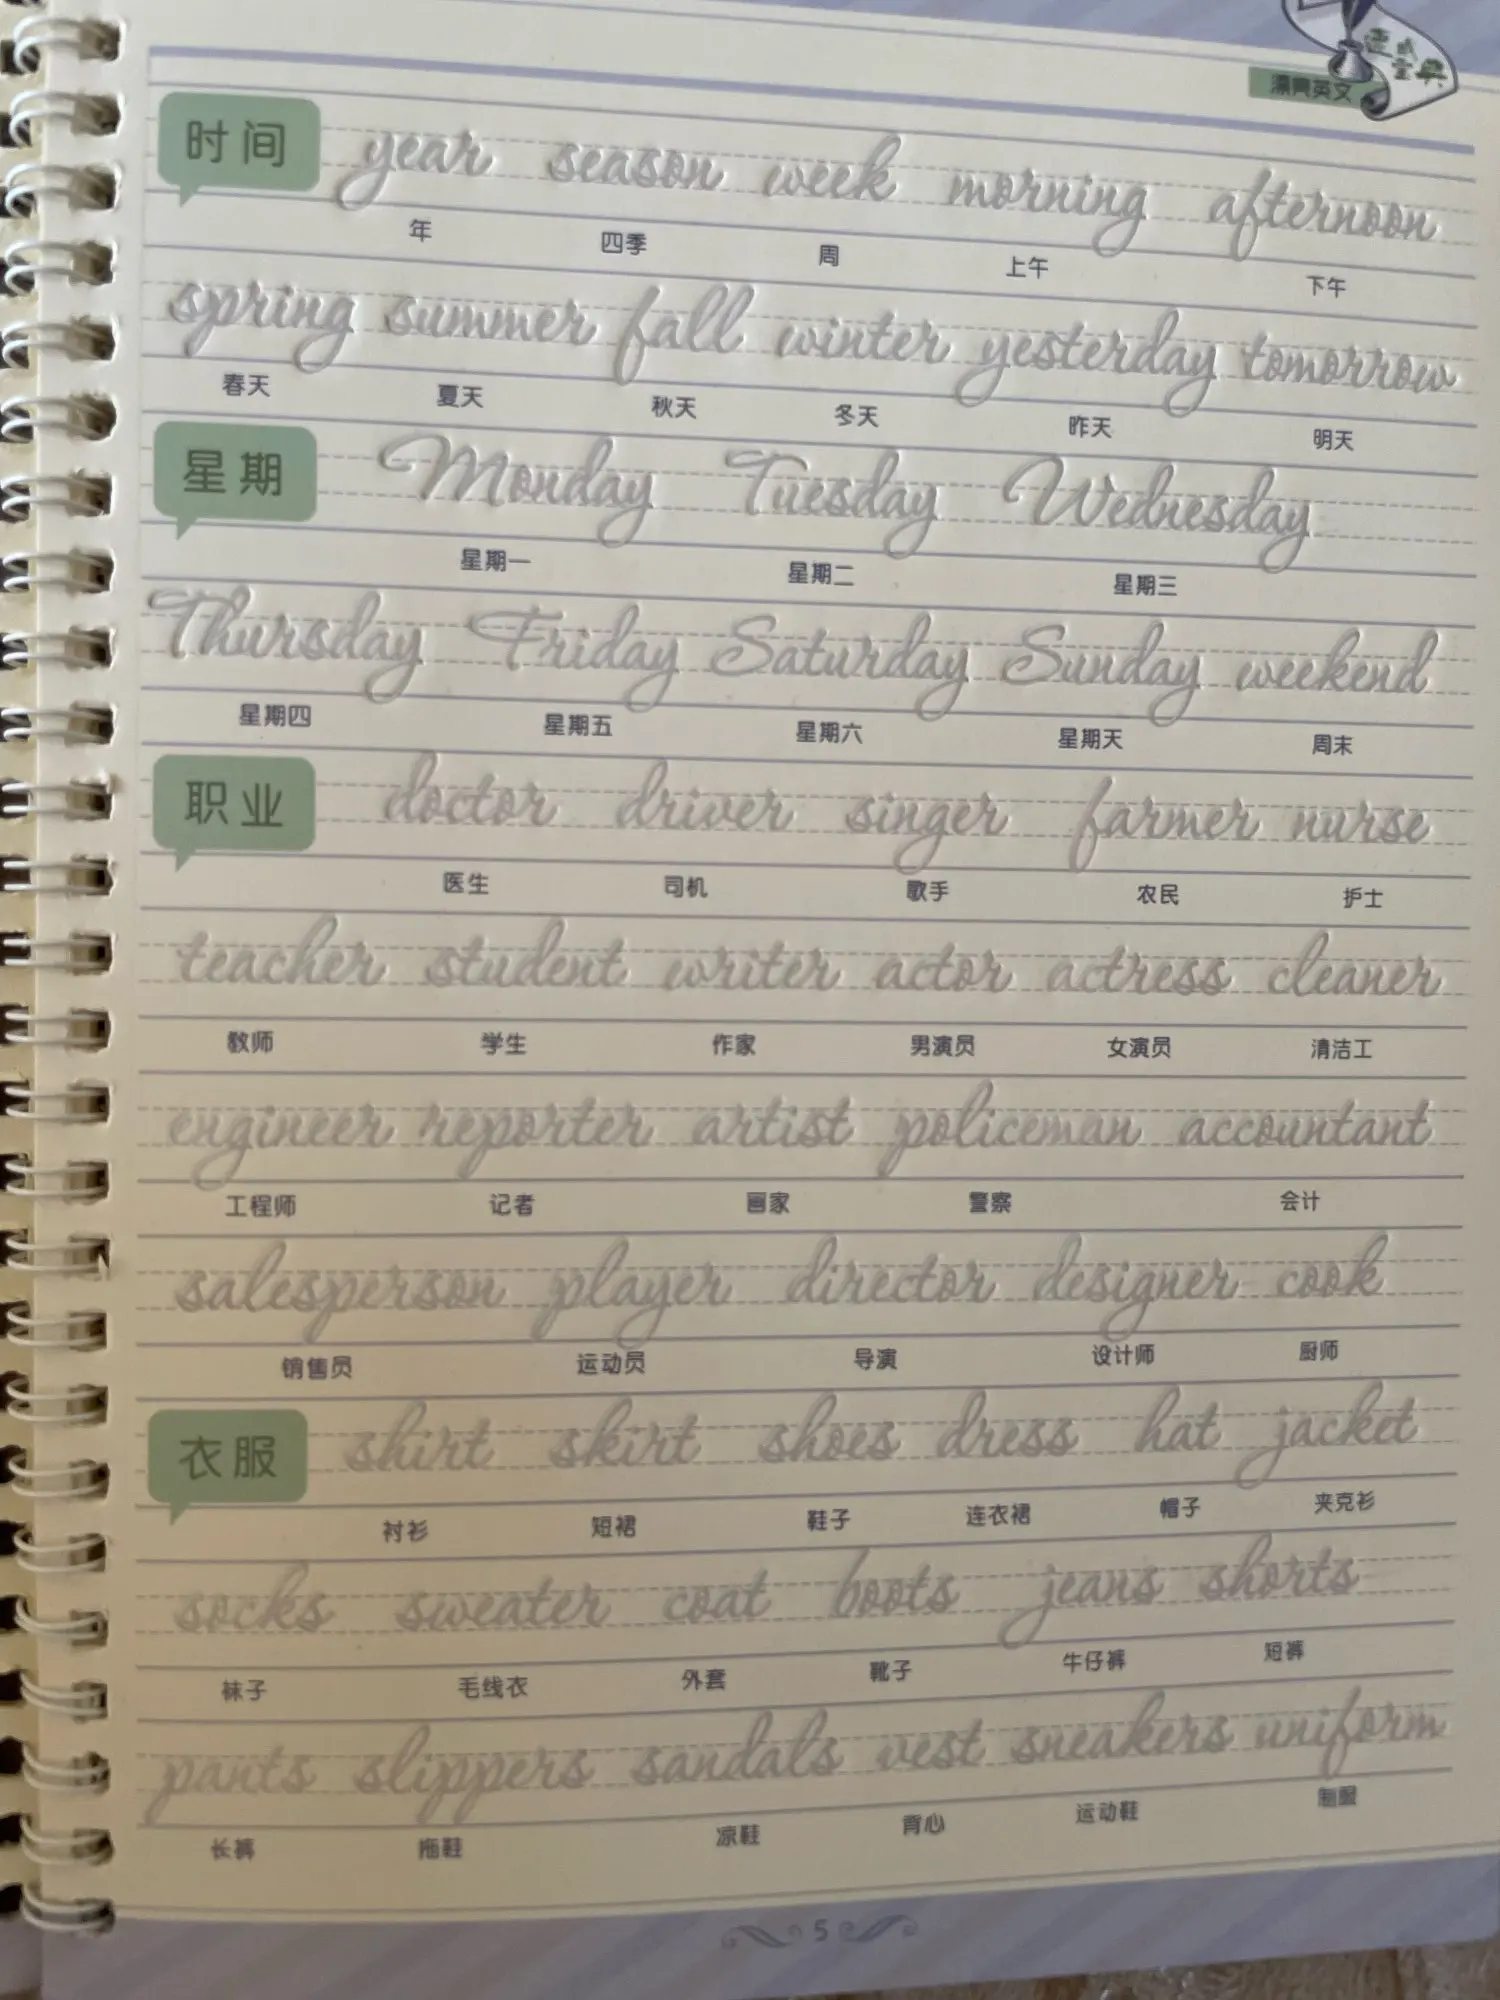 漂亮英文
时间 year season week morning afternoon
年 四季 周 上午 下午
spring summer fall winter yesterday tomorrow
春天 夏天 秋天 冬天 昨天 明天
星期 Monday Tuesday Wednesday
星期一 星期二 星期三
Thursday Friday Saturday Sunday weekend
星期四 星期五 星期六 星期天 周末
职业 doctor driver singer farmer nurse
医生 司机 歌手 农民 护士
teacher student writer actor actress cleaner
教师 学生 作家 男演员 女演员 清洁工
engineer reporter artist policeman accountant
工程师 记者 画家 警察 会计
salesperson player director designer cook
销售员 运动员 导演 设计师 厨师
衣服 shirt skirt shoes dress hat jacket
衬衫 短裙 鞋子 连衣裙 帽子 夹克衫
socks sweater coat boots jeans shorts
袜子 毛线衣 外套 靴子 牛仔裤 短裤
pants slippers sandals vest sneakers uniform
长裤 拖鞋 凉鞋 背心 运动鞋 制服
5